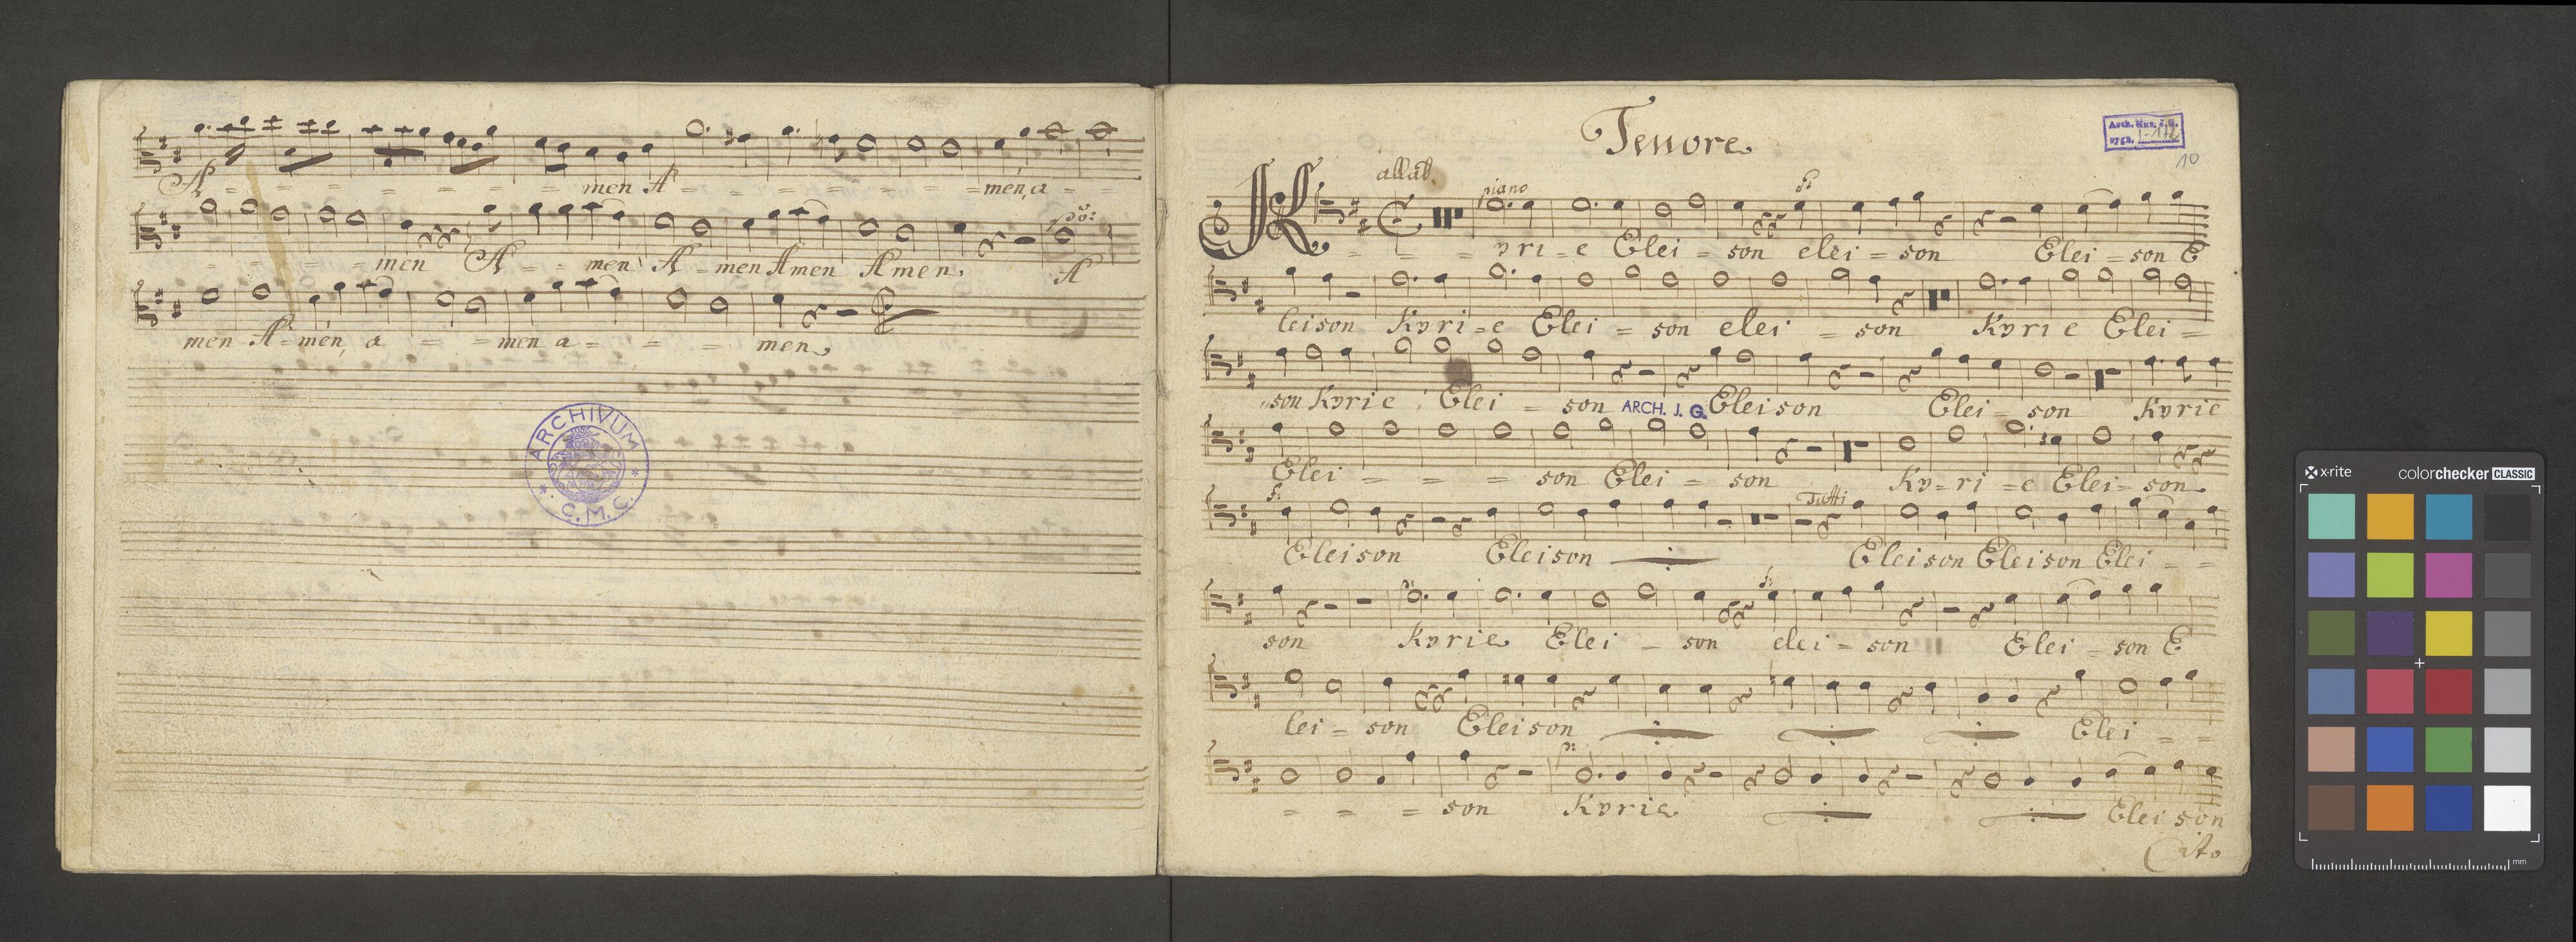 A - - - - - - men A - - - - - - - men, a - -
- - - - men A - - men A - men Amen Amen. A
men A - men, a - - men a - - - men.
ARCHIVUM
C. M. C.
Tenore
10
piano
K - - - yri - e Elei - son elei - son Elei - son E
leison Kyri - e Elei - son elei - son Kyrie Elei -
son Kyrie Elei - son Eleison Elei - son Kyrie
ARCH. J. G.
Elei - - - son Elei - son Ky - ri - e Elei - son
Tutti
Eleison Eleison Eleison Eleison Elei - -
son Kyrie Elei - son elei - son Elei - son E
lei - son Eleison Elei - -
- - - son Kyrie Eleison
Cito
x-rite
colorchecker CLASSIC
mm